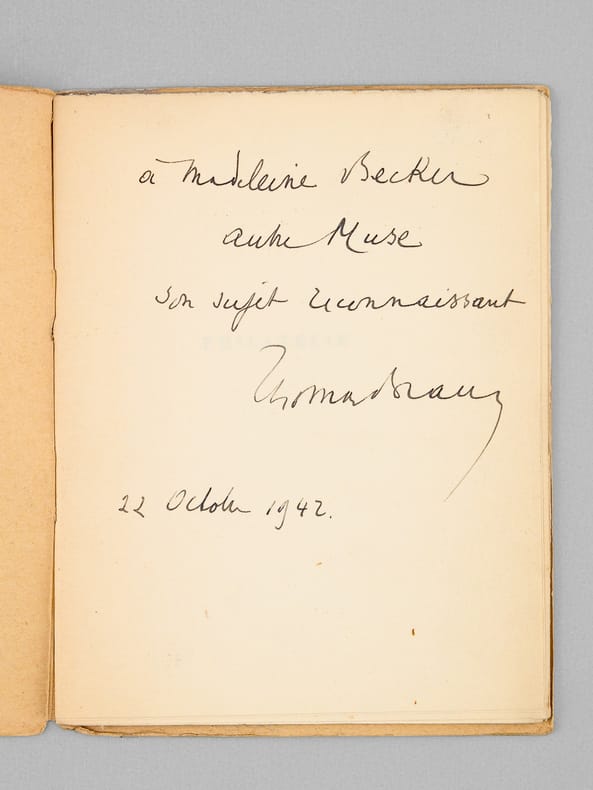 à Madeleine Becker
autre Muse
son sujet reconnaissant
Thomas Braun
22 Octobre 1942.